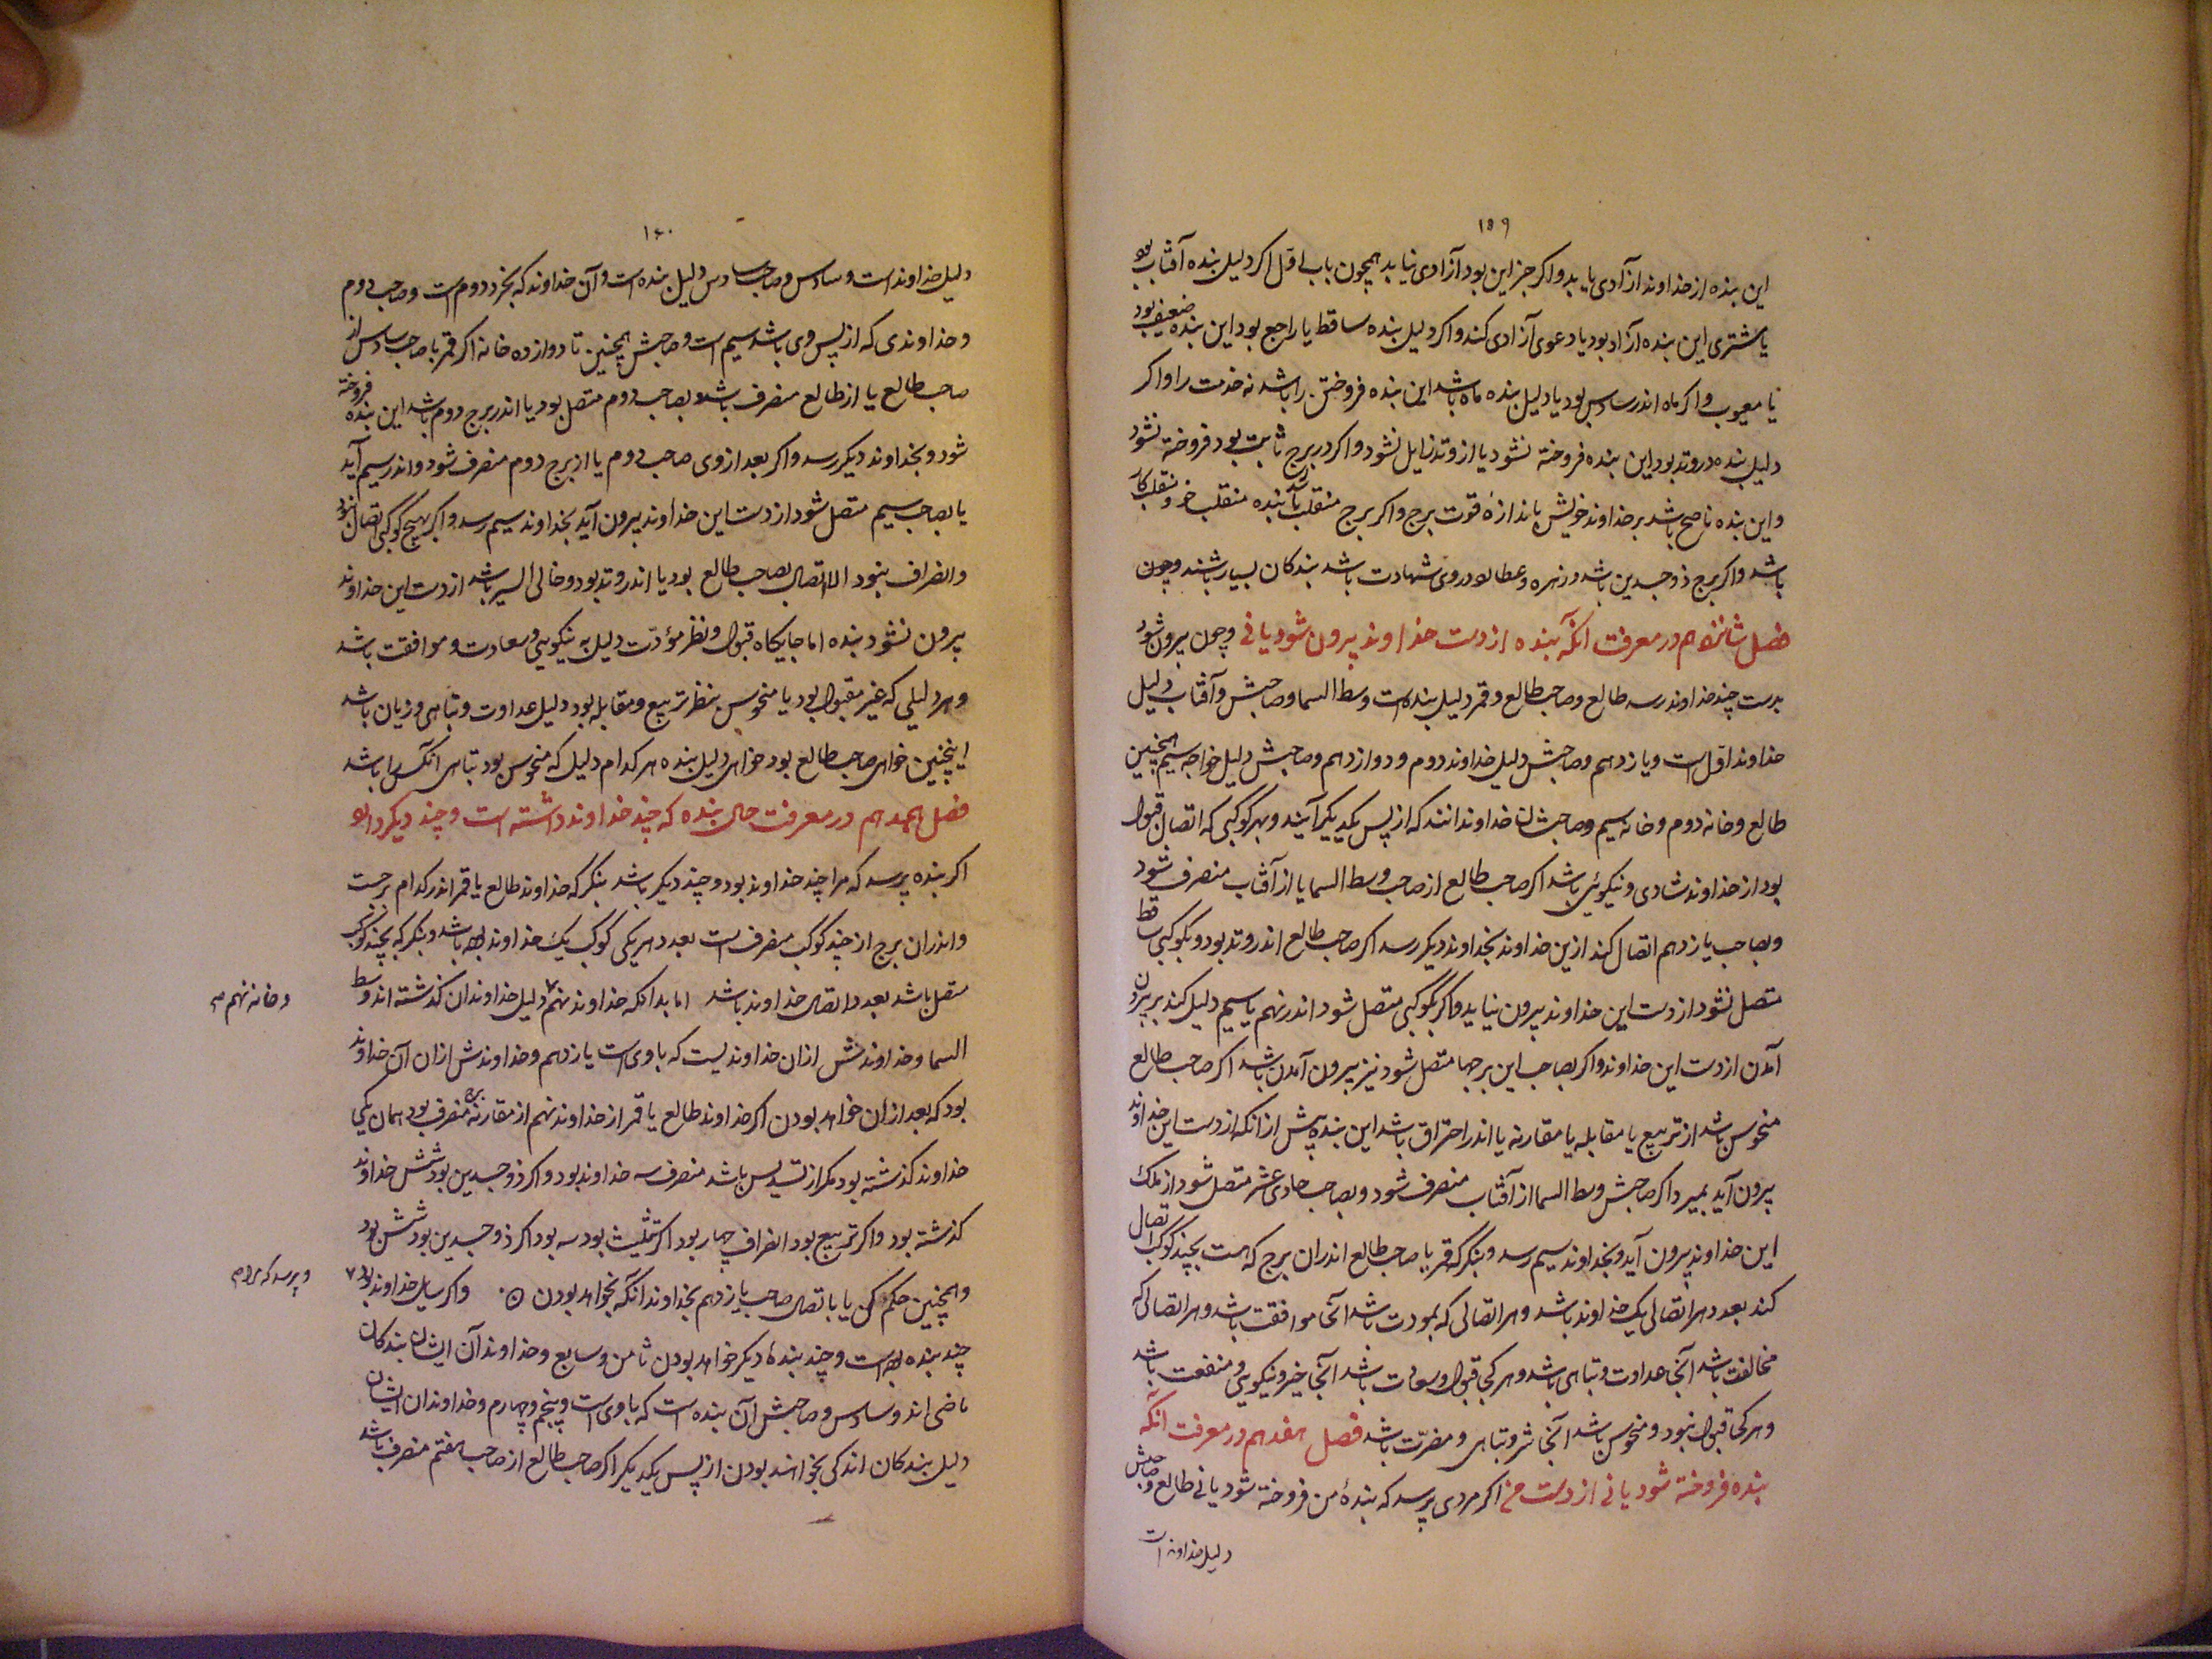 ۱۵۹
این بنده از خداوند آزادی یابد و اکر جز این بود آزادی نیابد همچون باب اول اکر دلیل بنده آفتاب بود
یا مشتری این بنده آزاد بود یا دعوی آزادی کند و اکر دلیل بنده ساقط یا راجع بود این بنده ضعیف بود
یا معیوب و اکر ماه اندر سادس بود یا دلیل بنده ماه باشد این بنده فروختن را باشد نه خدمت را و اکر
دلیل بنده در وتد بود این بنده فروخته نشود یا از وتد زایل نشود و اکر در برج ثابت بود فروخته نشود
و این بنده ناصح باشد بر خداوند خویش باندازهٔ قوت برج و اکر برج منقلب باشد بنده منقلب خو و منقلب کار
باشد و اکر برج ذو جسدین باشد و زهره و عطارد در وی شهادت باشد بندکان بسیار باشند و چون
فصل شانزدهم در معرفت آنکه بنده از دست خداوند بیرون شود یا نی و چون بیرون شود
بدست چند خداوند رسد طالع و صاحب طالع و قمر دلیل بنده است وسط السما و صاحبش و آفتاب دلیل
خداوند اول است و یازدهم و صاحبش دلیل خداوند دوم و دوازدهم و صاحبش دلیل خواجه سیم همچنین
طالع و خانه دوم و خانه سیم و صاحبشان خداوندانند که از پس یکدیکر آیند و بهر کوکبی که اتصال قبول
بود از خداوند شادی و نیکوئی باشد اکر صاحب طالع از صاحب وسط السما یا از آفتاب منصرف شود
و بصاحب یازدهم اتصال کند ازین خداوند بخداوند دیکر رسد اکر صاحب طالع اندر وتد بود و بکوکبی ساقط
متصل نشود از دست این خداوند بیرون نیاید و اکر بکوکبی متصل شود اندر نهم یا سیم دلیل کند بر بیرون
آمدن از دست این خداوند و اکر بصاحب این برجها متصل شود نیز بیرون آمدن باشد اکر صاحب طالع
منحوس باشد از تربیع یا مقابله یا مقارنه یا اندر احتراق باشد این بنده پیش از انکه از دست این خداوند
بیرون آید بمیرد اکر صاحبش وسط السما از آفتاب منصرف شود و بصاحب حادی عشر متصل شود از ملک
این خداوند بیرون آید و بخداوند سیم رسد و بنکر که قمر یا صاحب طالع اندران برج که هست بچند کوکب اتصال
کند بعدد هر اتصالی یک خداوند باشد و هر اتصالی که بمودت باشد آنجا موافقت باشد و هر اتصالی که
مخالفت باشد آنجا عداوت و تباهی باشد و هر کجا قبول و سعادت باشد آنجا خیر و نیکویی و منفعت باشد
و هر کجا قبول نبود و منحوس باشد آنجا شر و تباهی و مضرت باشد فصل هفدهم در معرفت آنکه
بنده فروخته شود یا نی از دست من اکر مردی پرسد که بندهٔ من فروخته شود یا نی طالع و صاحبش
دلیل خداوند است
۱۶۰
دلیل خداوند است و سادس و صاحب سادس دلیل بنده است و آن خداوند که بخرد دوم است و صاحب دوم
و خداوندی که از پس وی باشد سیم است و صاحبش همچنین تا دوازده خانه اکر قمر یا صاحب سادس از
صاحب طالع یا از طالع منصرف باشد و بصاحب دوم متصل بود یا اندر برج دوم باشد این بنده فروخته
شود و بخداوند دیکر رسد و اکر بعد از وی صاحب دوم یا از برج دوم منصرف شود و اندر سیم آید
یا بصاحب سیم متصل شود از دست این خداوند بیرون آید بخداوند سیم رسد و اکر بهیچ کوکبی اتصال نبود
و انصراف نبود الا اتصال بصاحب طالع بود یا اندر وتد بود و خالی السیر باشد از دست این خداوند
بیرون نشود بنده اما جایکاه قبول و نظر مودّت دلیل بر نیکویی و سعادت و موافقت باشد
و هر دلیلی که غیر مقبول بود یا منحوس بنظر تربیع و مقابله بود دلیل عداوت و تباهی و زیان باشد
اینچنین خواه صاحب طالع بود خواه دلیل بنده هر کدام دلیل که منحوس بود تباهی آنکس را باشد
فصل هجدهم در معرفت حال بنده که چند خداوند داشته است و چند دیکر دارد
اکر بنده پرسد که مرا چند خداوند بود و چند دیکر باشد بنکر که خداوند طالع یا قمر اندر کدام برجست
و اندران برج از چند کوکب منصرف است بعدد هر یکی کوکب یک خداوند بوده باشد و بنکر که بچند کوکب
متصل باشد بعدد اتصال خداوند باشد اما بدانکه خداوند نهم دلیل خداوندان کذشته اند وسط
و خانه نهم صح
السما و خداوندش ازان خداوندیست که با وی است یازدهم و خداوندش ازان آن خداوند
بود که بعد ازان خواهد بودن اکر خداوند طالع یا قمر از خداوند نهم از مقارنه منصرف بود همان یکی
خداوند کذشته بود مکر از تسدیس باشد منصرف سه خداوند بود و اکر ذو جسدین بود شش خداوند
کذشته بود و اکر تربیع بود انصراف چهار بود اکر تثلیث بود سه بود اکر ذو جسدین بود شش بود
و همچنین حکم کن یا باتصال صاحب یازدهم بخداوند آنکه بخواهد بودن و اکر سایل خداوند بود
و پرسد که مرا صح
چند بنده بوده است و چند بندهٔ دیکر خواهد بودن ثامن و سابع و خداوند آن ایشان بندکان
ماضی اند و سادس و صاحبش آن بنده است که با وی است و پنجم و چهارم و خداوندان ایشان
دلیل بندکان اندکی بخواهند بودن از پس یکدیکر اکر صاحب طالع از صاحب هفتم منصرف باشد